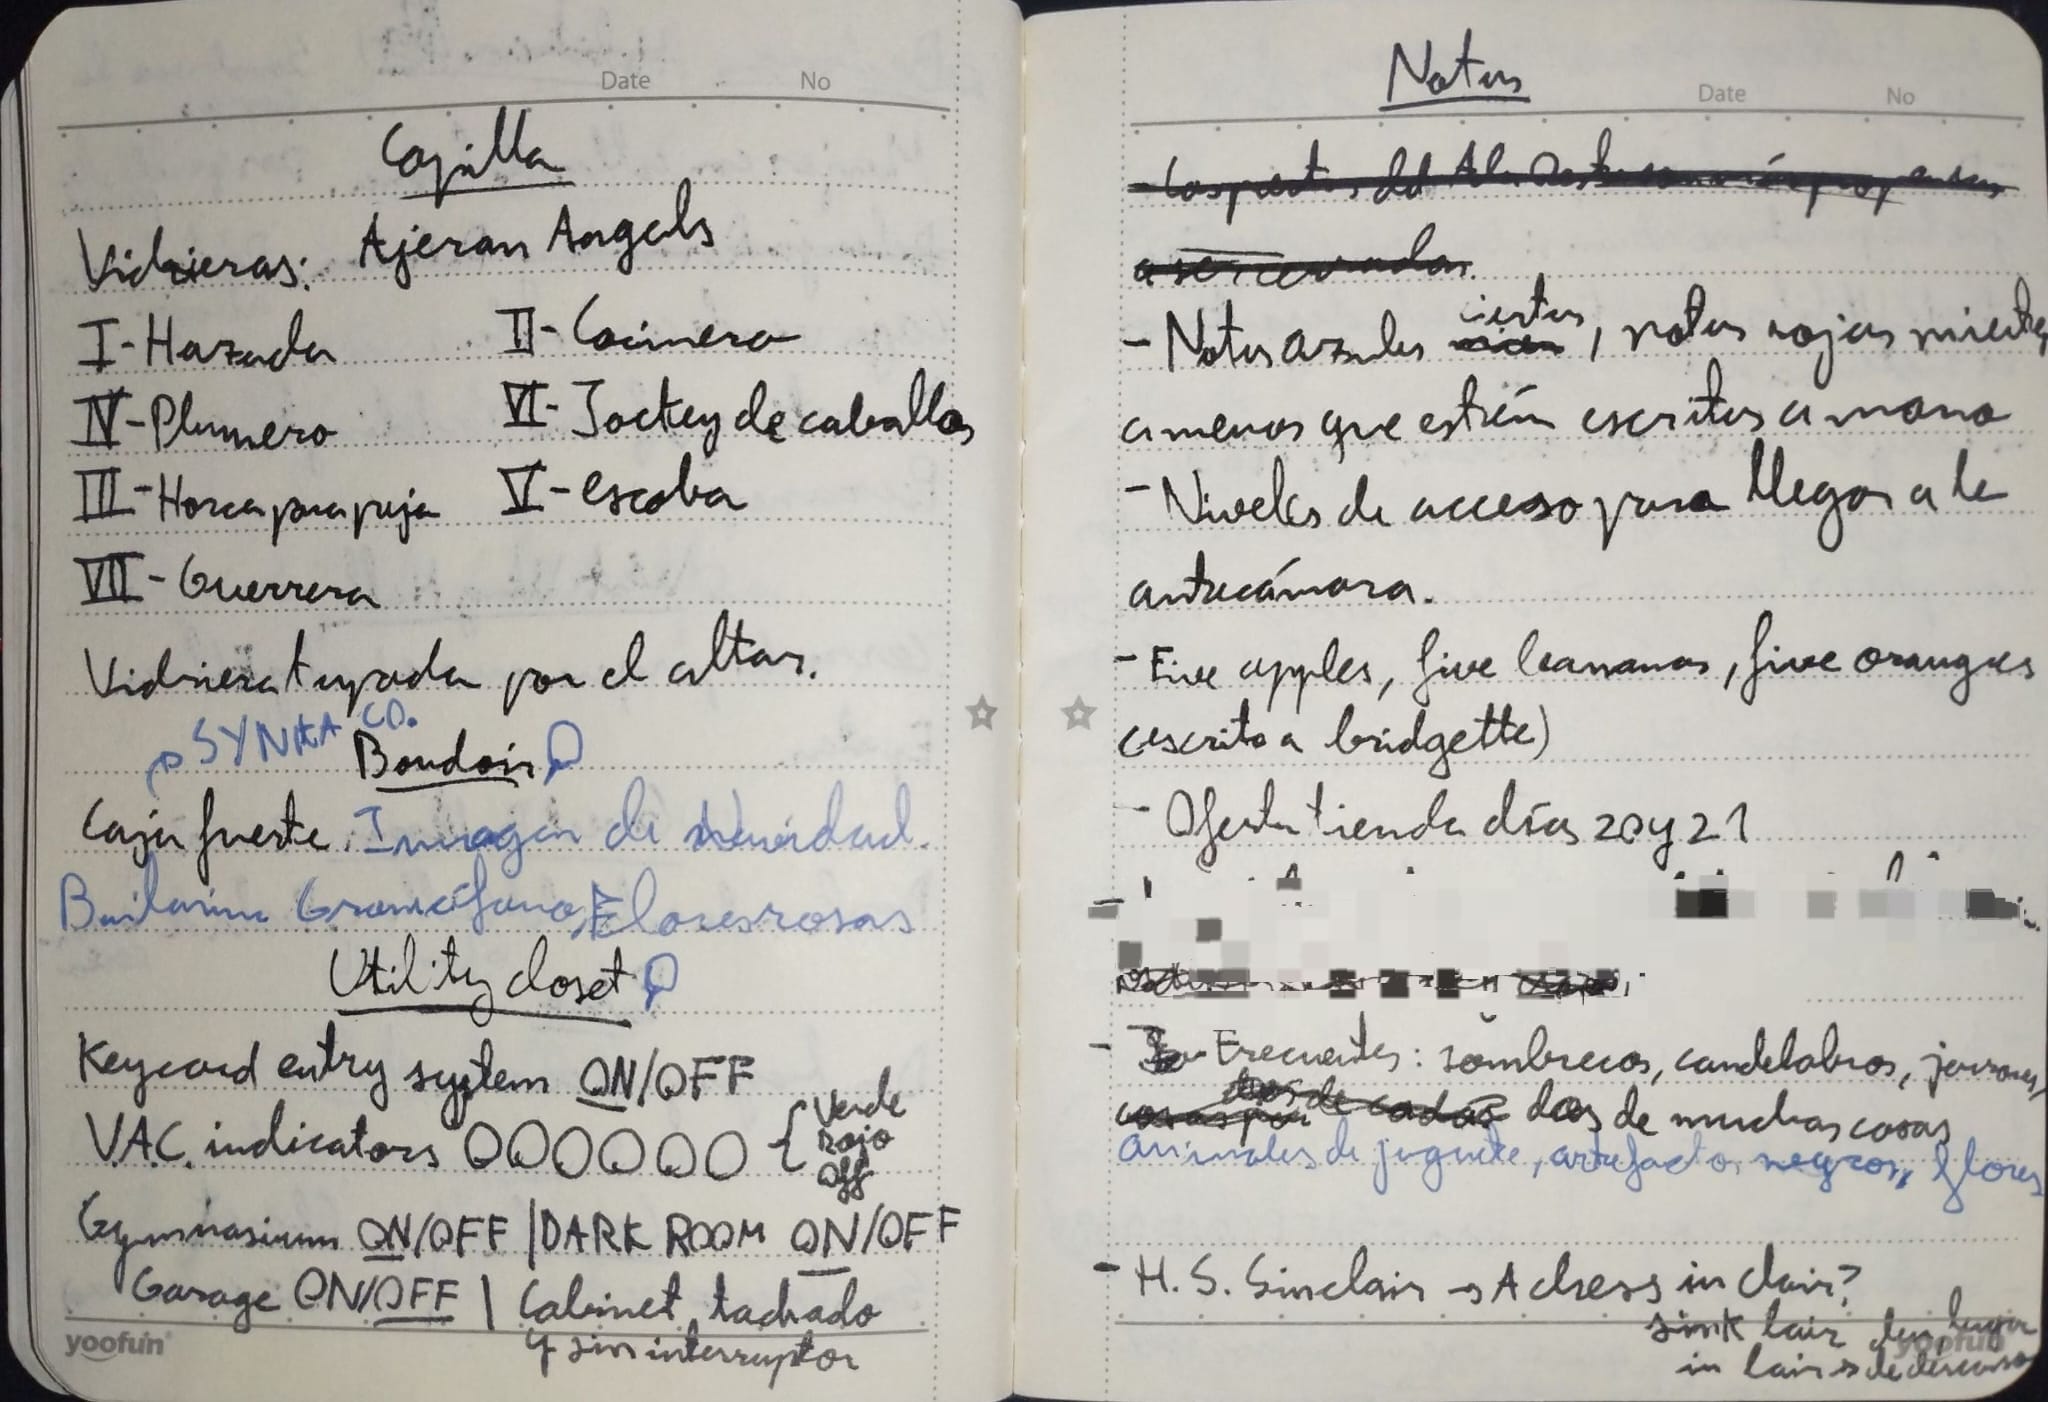 Date No
Capilla
Vidrieras: Ajeran Angels
I-Hazada II-Cocinera
IV-Plumero VI-Jockey de caballos
III-Horca para paja V-escoba
VII-Guerrera
Vidriera tapada por el altar.
SYNKA CO.
Boudoir
Caja fuerte. Imagen de Navidad.
Bailarina Gramófono, Flores rosas
Utility closet
Keycard entry system ON/OFF
V.A.C. indicators OOOOOO { Verde
Rojo
Off
Gymnasium ON/OFF | DARK ROOM ON/OFF
Garage ON/OFF | Cabinet tachado
y sin interruptor
yoofun
Notas
Date No
a ser cerradas.
- Notas azules ciertas, notas rojas mienten
a menos que estén escritas a mano
- Niveles de acceso para llegar a la
antecámara.
- Five apples, five bananas, five oranges
(escrito a bridgette)
- Oferta tienda días 20 y 21
- Frecuentes: sombreros, candelabros, jarrones,
dos de muchas cosas
animales de juguete, artefactos negros, flores
- H.S. Sinclair → A chess in clair?
sink lair
in lair → de descanso
yoofun